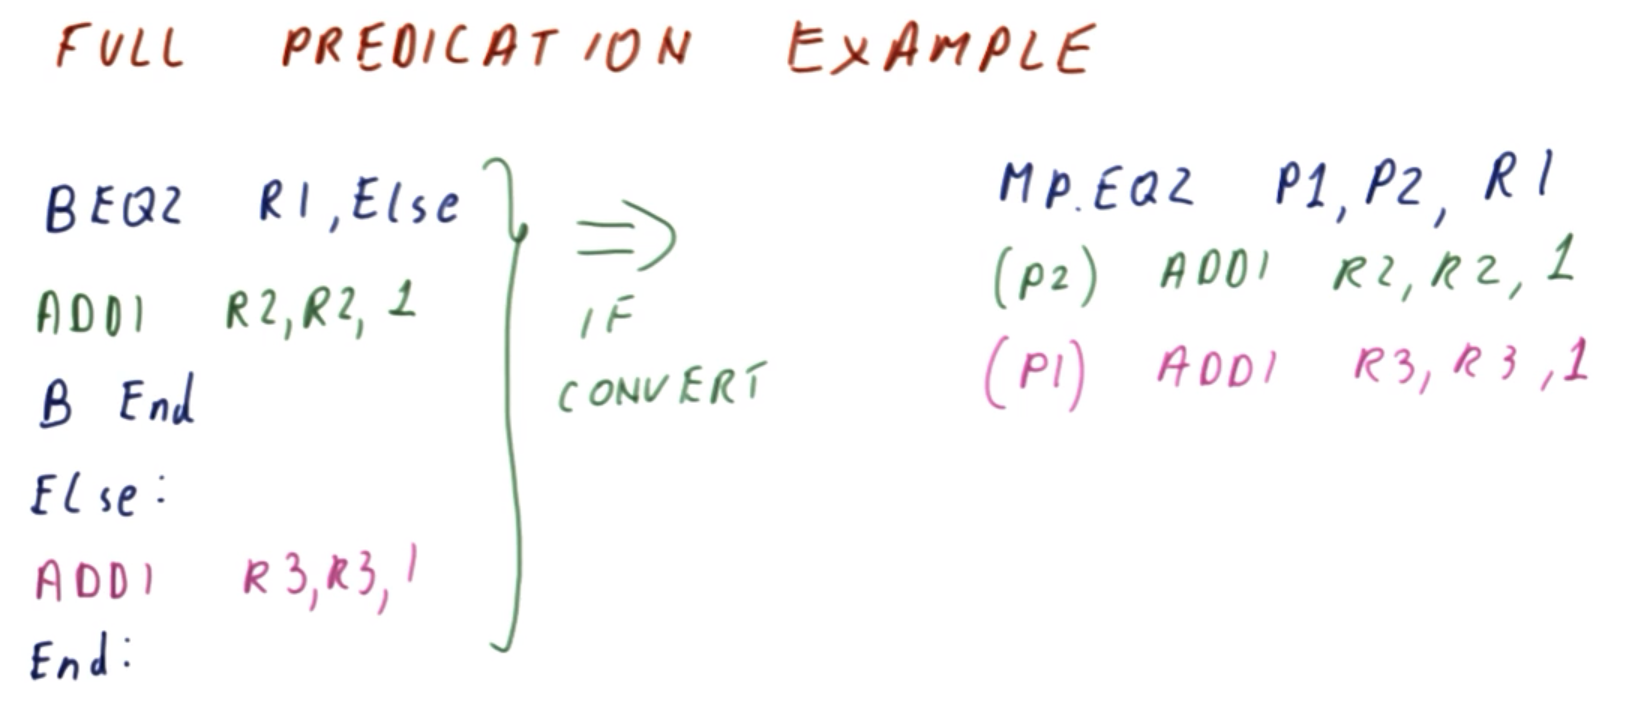 FULL PREDICATION EXAMPLE
BEQZ R1, Else
ADDI R2, R2, 1
B End
Else:
ADDI R3, R3, 1
End:
⇒
IF
CONVERT
MP.EQZ P1, P2, R1
(P2) ADDI R2, R2, 1
(P1) ADDI R3, R3, 1